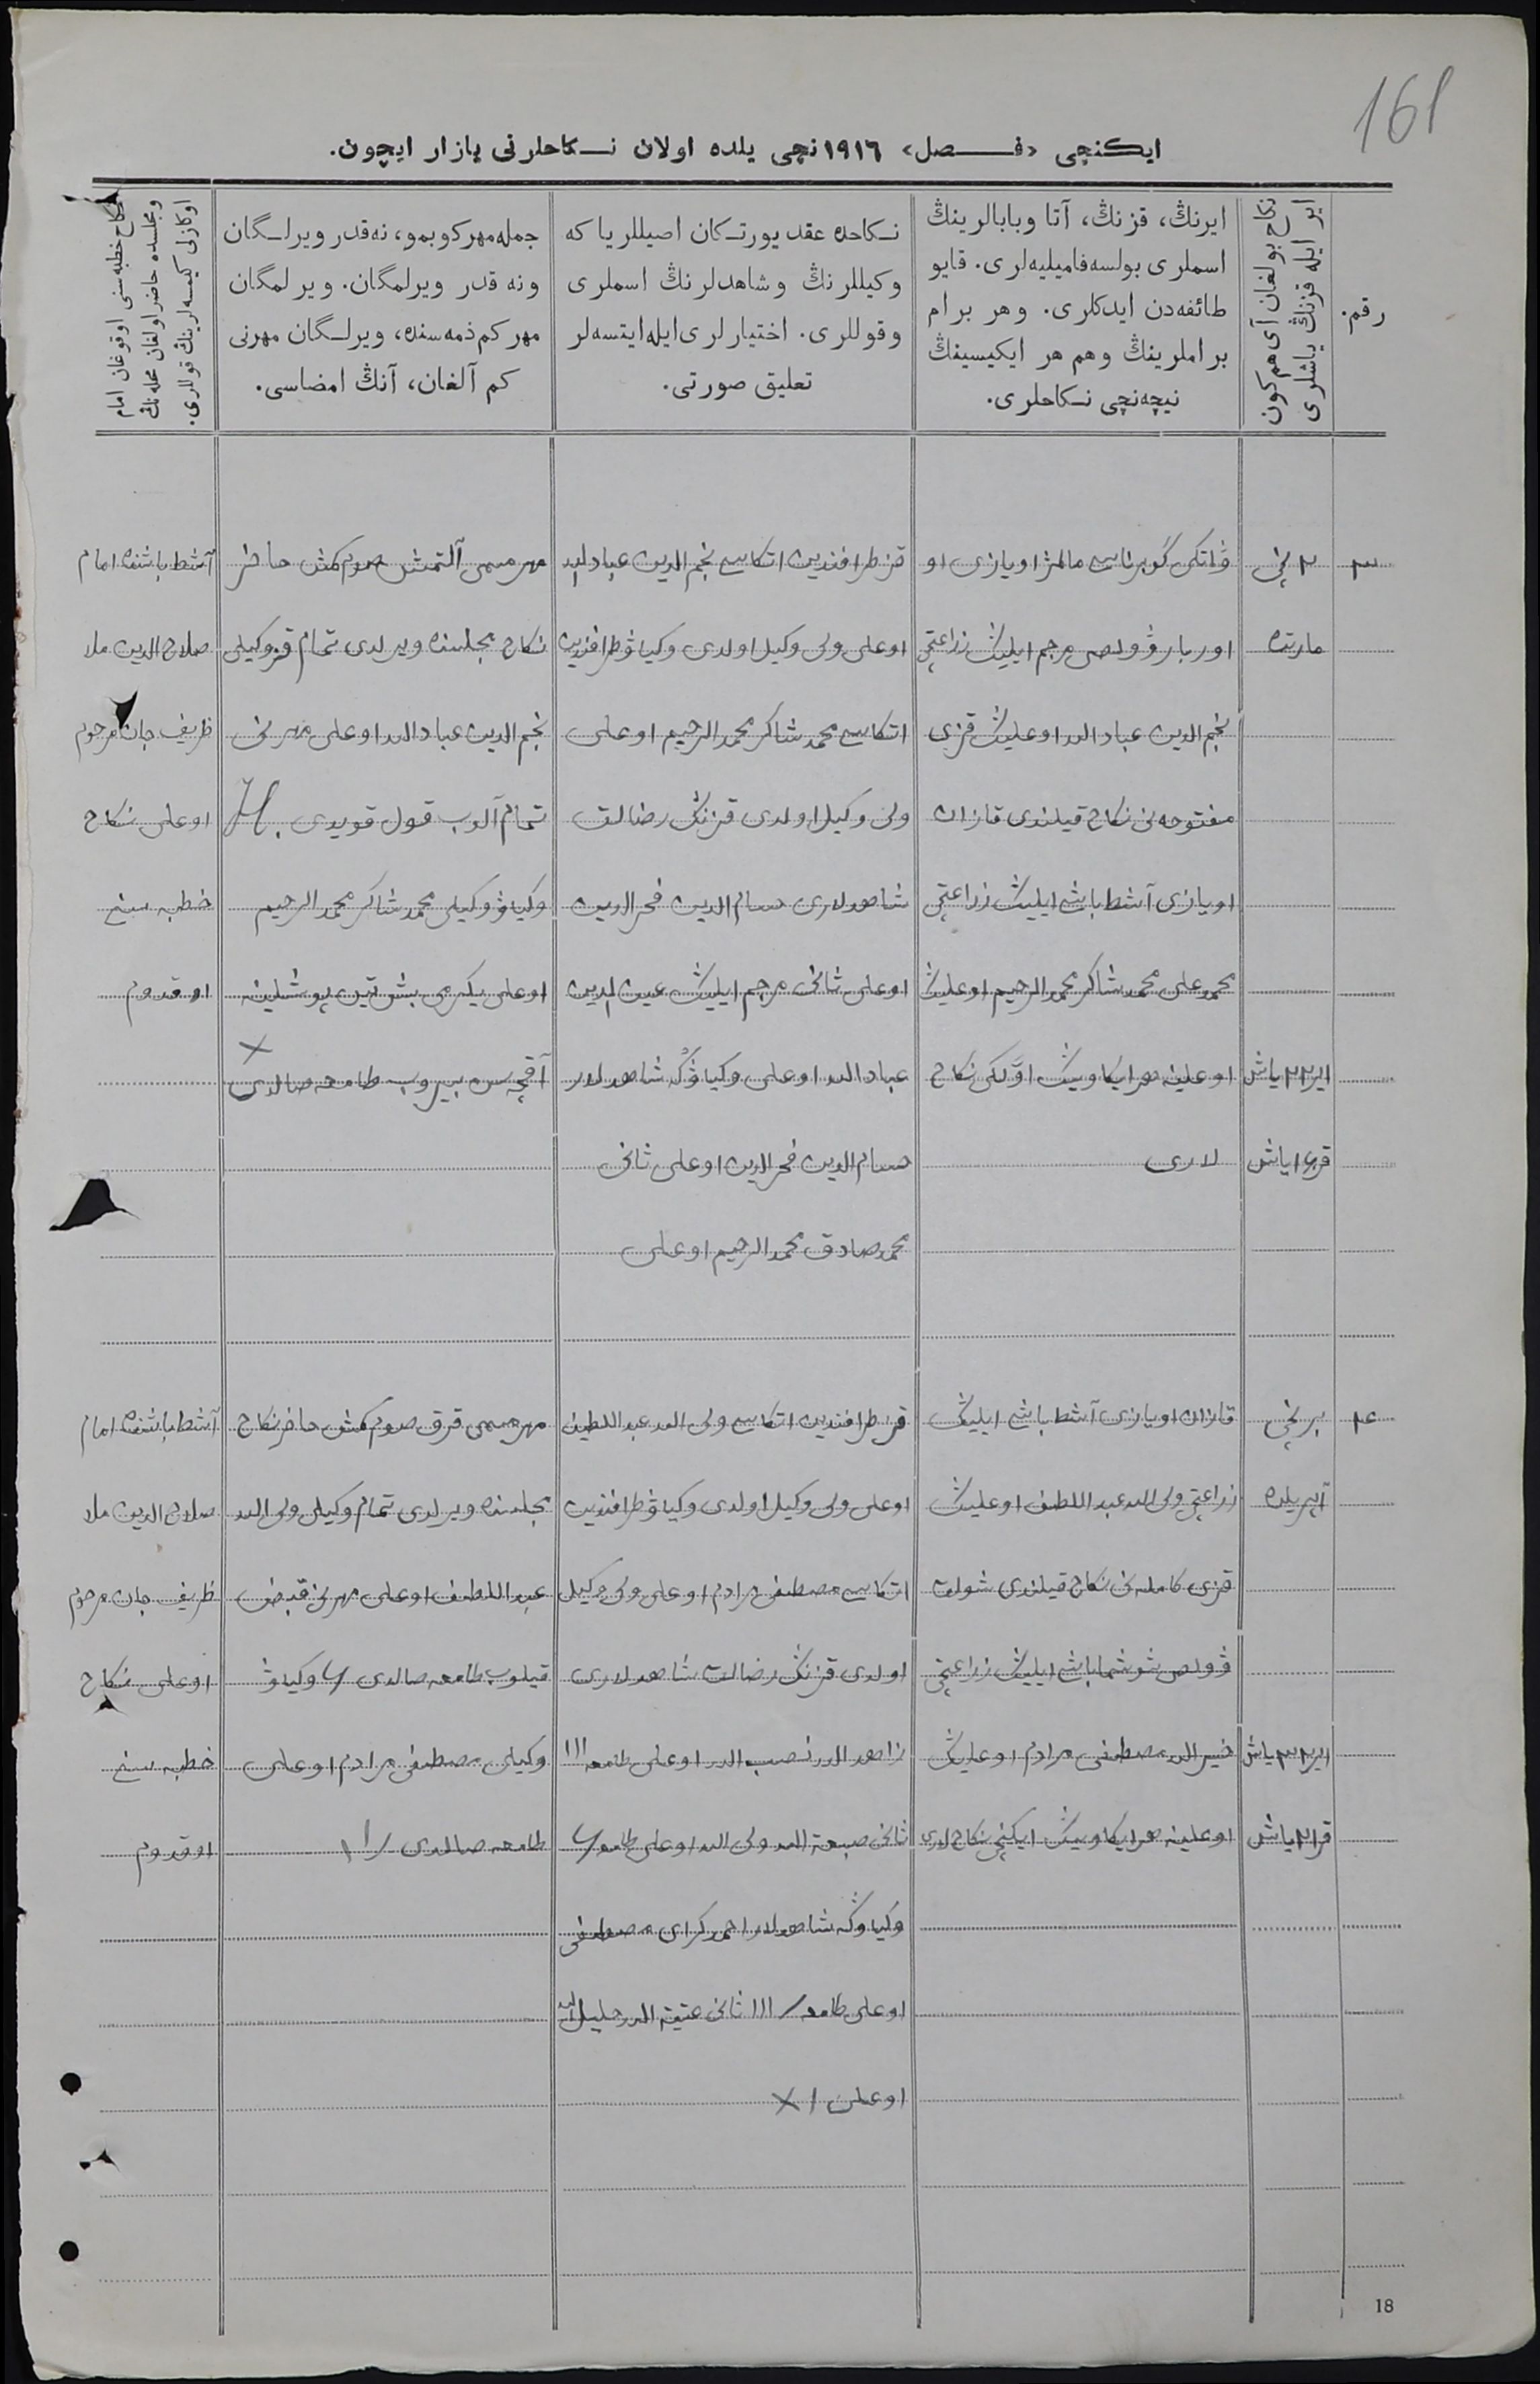 161
ایكنچی «فـصل» ١٩١٦نچی یلده اولان نـكاحلرنی یازار ایچون.
رقم.
ایر ایله قزنڭ یاشلری
نكاح بولغان آی هم كون
ایرنڭ، قزنڭ، آتا وبابالرینڭ
اسملری بولسه فامیلیه‌لری. قایو
طائفه‌دن ایدكلری. وهر برام
براملرینڭ وهم هر ایكیسینڭ
نیچه‌نچی نـكاحلری.
نـكاحده عقد یورتـكان اصیللر یا كه
وكیللرنڭ وشاهدلرنڭ اسملری
وقوللری. اختیارلری ایله ایتسه‌لر
تعلیق صورتی.
جمله مهر كوبمو، نه‌قدر ویرلـگان
ونه قدر ویرلمگان. ویرلمگان
مهر كم ذمه‌سنده، ویرلـگان مهرنی
كم آلغان، آنڭ امضاسی.
نكاح خطبه‌سنی اوقوغان امام
ومجلسده حاضر اولغان محله‌نڭ
اوكازلی كیمسه‌لرینڭ قوللری.
٣
٢ نچی
مارتده
ایر ٢٢ یاش
قز ١٧ یاش
ۋاتكی گوبرناسی مالمژ اویازی او
اوربار ۋولصی مرجم ایلینڭ زراعتچی
نجم الدین عباد الله اوعلینڭ قزی
مفتوحه‌نی نكاح قیلندی قازان
اویازی آشطباش ایلینڭ زراعتچی
محمدعلی محمدشاكر محمدالرحیم اوعلینڭ
اوعلینه هر ایكاوینڭ اوّلكی نكاح
لاری
قز طرافندین اتكاسی نجم الدین عبادالله
اوعلی ولی وكیل اولدی وكیاۋ طرافندین
اتكاسی محمدشاكر محمدالرحیم اوعلی
ولی وكیل اولدی قزنڭ رضالق
شاهدلاری حسام الدین فخرالدین
اوعلی ثانی مرجم ایلینڭ عین الدین
عبادالله اوعلی وكیاۋگه شاهدلار
حسام الدین فخرالدین اوعلی ثانی
محمدصادق محمدالرحیم اوعلی
مهر مسمی آلتمش صوم كمش حاضر
نكاح مجلسنده ویرلدی تمام قز وكیلی
نجم الدین عبادالله اوعلی مهرنی
تمام آلوب قول قویدی.
وكیاۋ وكیلی محمدشاكر محمدالرحیم
اوعلی یكرمی بش تین پوشلینه
آقچه‌سن بیروب طامعه صالدی X
آشطباشنده امام
صلاح الدین ملا
ظریف جان مرحوم
اوعلی نكاح
خطبه سنی
اوقدوم
٤
برنچی
آپریلده
ایر ٣٢ یاش
قز ٢١ یاش
قازان اویازی آشطباش ایلینڭ
زراعتچی ولی الله عبد اللطیف اوعلینڭ
قزی كامله‌نی نكاح قیلندی شولوق
ۋولص شوشماباش ایلینڭ زراعتچی
خیرالله مصطفی مرادم اوعلینڭ
اوعلینه هر ایكاوینڭ ایكنچی نكاح لاری
قز طرافندین اتكاسی ولی الله عبد اللطیف
اوعلی ولی وكیل اولدی وكیاۋ طرافندین
اتكاسی مصطفی مرادم اوعلی ولی وكیل
اولدی قزنڭ رضالق شاهدلاری
زاهدالله نصیب الله اوعلی طامعه III
ثانی صبعة الله ولی الله اوعلی طامعه
وكیاوگه شاهدلار احمدكرای مصطفی
اوعلی طامعه / III ثانی عتیق الله جلیل الله
اوعلی IX
مهر مسمی قرق صوم كمش حاضر نكاح
مجلسنده ویرلدی تمام وكیلی ولی الله
عبد اللطیف اوعلی مهرنی قبض
قیلوب طامعه صالدی وكیاۋ
وكیلی مصطفی مرادم اوعلی
طامعه صالدی
آشطباشنده امام
صلاح الدین ملا
ظریف جان مرحوم
اوعلی نكاح
خطبه سنی
اوقدوم
18